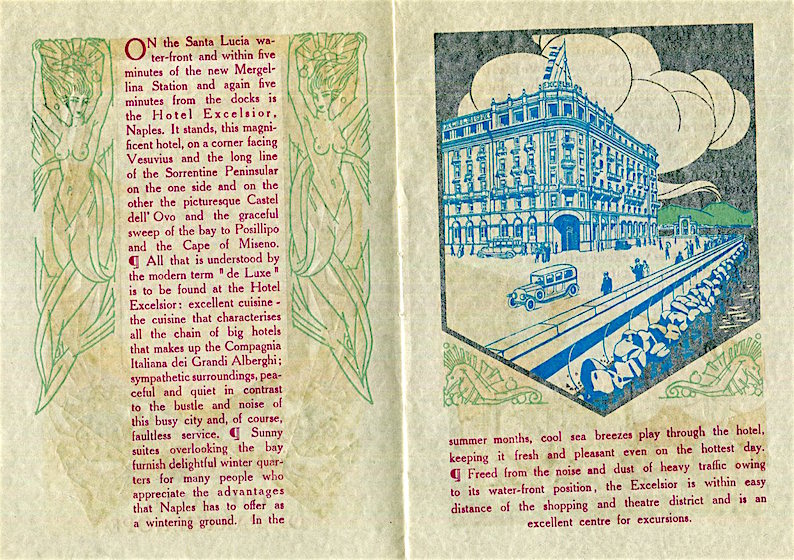 ON the Santa Lucia wa-
ter-front and within five
minutes of the new Mergel-
lina Station and again five
minutes from the docks is
the Hotel Excelsior,
Naples. It stands, this magni-
ficent hotel, on a corner facing
Vesuvius and the long line
of the Sorrentine Peninsular
on the one side and on the
other the picturesque Castel
dell' Ovo and the graceful
sweep of the bay to Posillipo
and the Cape of Miseno.
¶ All that is understood by
the modern term "de Luxe"
is to be found at the Hotel
Excelsior: excellent cuisine -
the cuisine that characterises
all the chain of big hotels
that makes up the Compagnia
Italiana dei Grandi Alberghi;
sympathetic surroundings, pea-
ceful and quiet in contrast
to the bustle and noise of
this busy city and, of course,
faultless service. ¶ Sunny
suites overlooking the bay
furnish delightful winter quar-
ters for many people who
appreciate the advantages
that Naples has to offer as
a wintering ground. In the
EXCELSIOR
EXCELSIOR
summer months, cool sea breezes play through the hotel,
keeping it fresh and pleasant even on the hottest day.
¶ Freed from the noise and dust of heavy traffic owing
to its water-front position, the Excelsior is within easy
distance of the shopping and theatre district and is an
excellent centre for excursions.